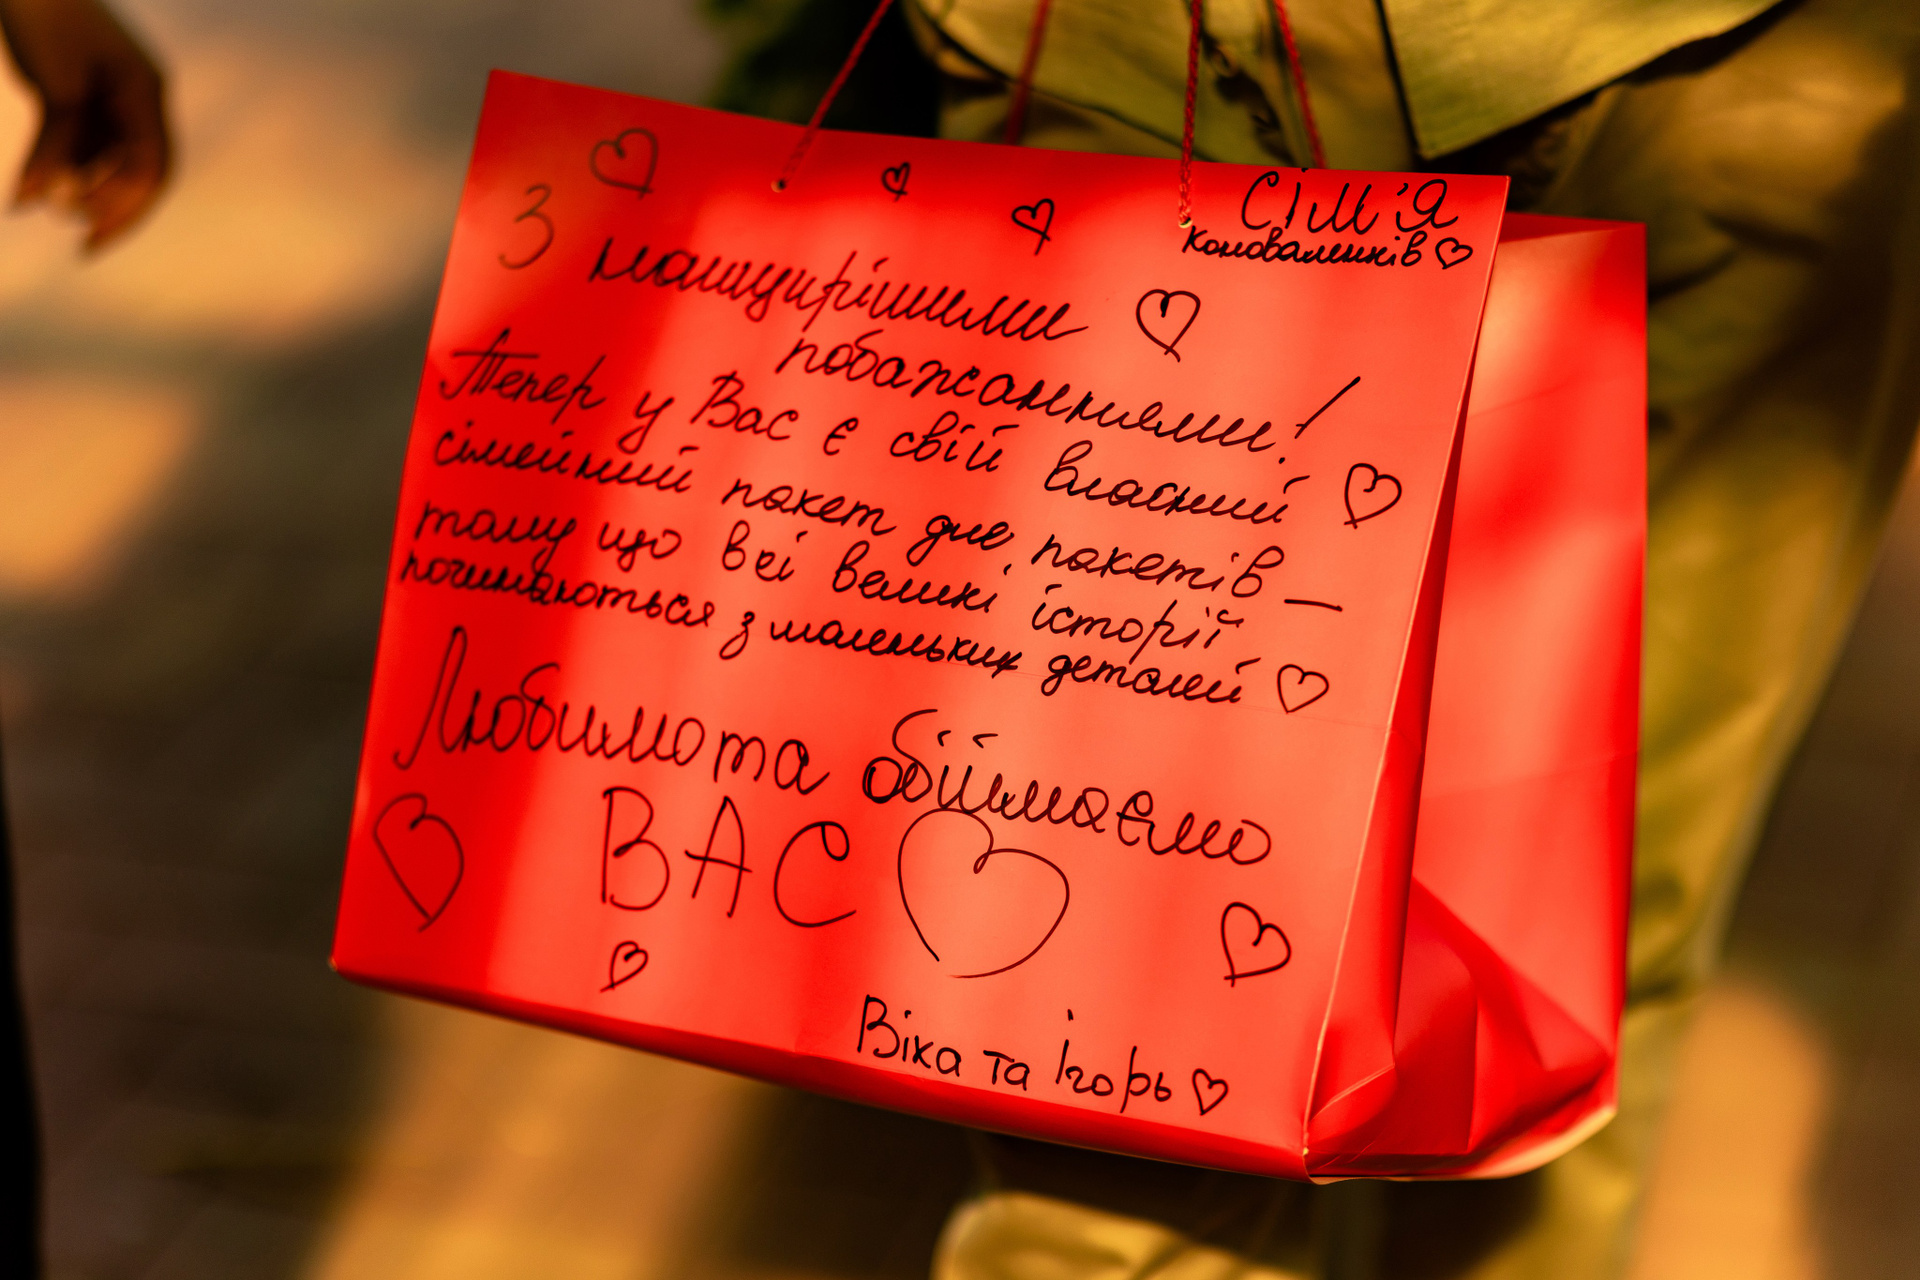 Сім'я
Коноваленків
З
найщирішими
побажаннями!
Тепер у Вас є свій власний
сімейний пакет для пакетів –
тому що всі великі історії
починаються з маленьких деталей
Любимо та обіймаємо
ВАС
Віка та Ігорь